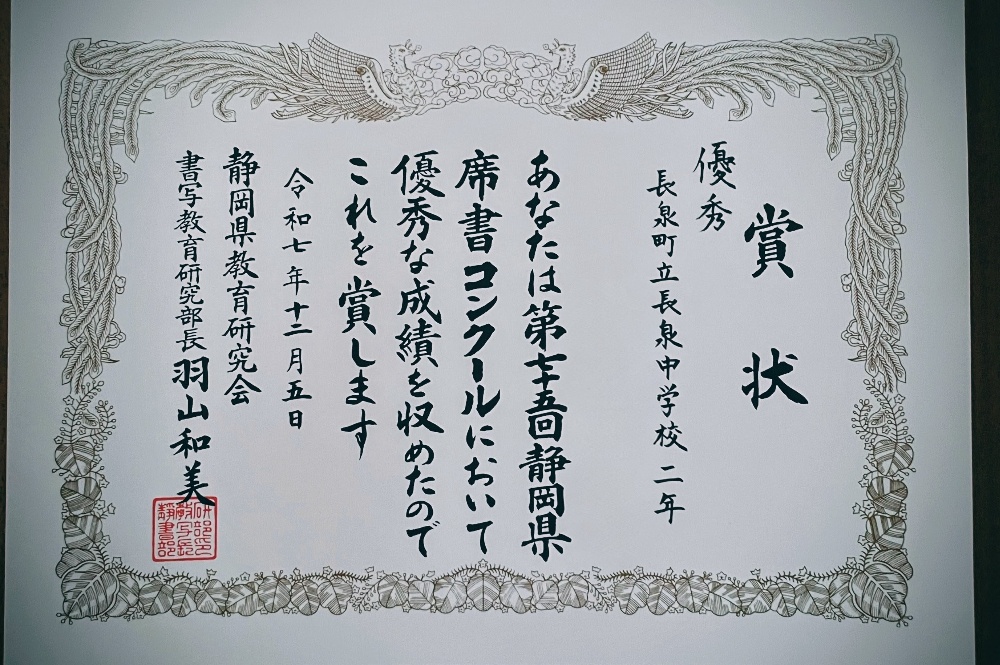 賞状
優秀
長泉町立長泉中学校 二年
あなたは第七十五回静岡県
席書コンクールにおいて
優秀な成績を収めたので
これを賞します
令和七年十二月五日
静岡県教育研究会
書写教育研究部長 羽山和美